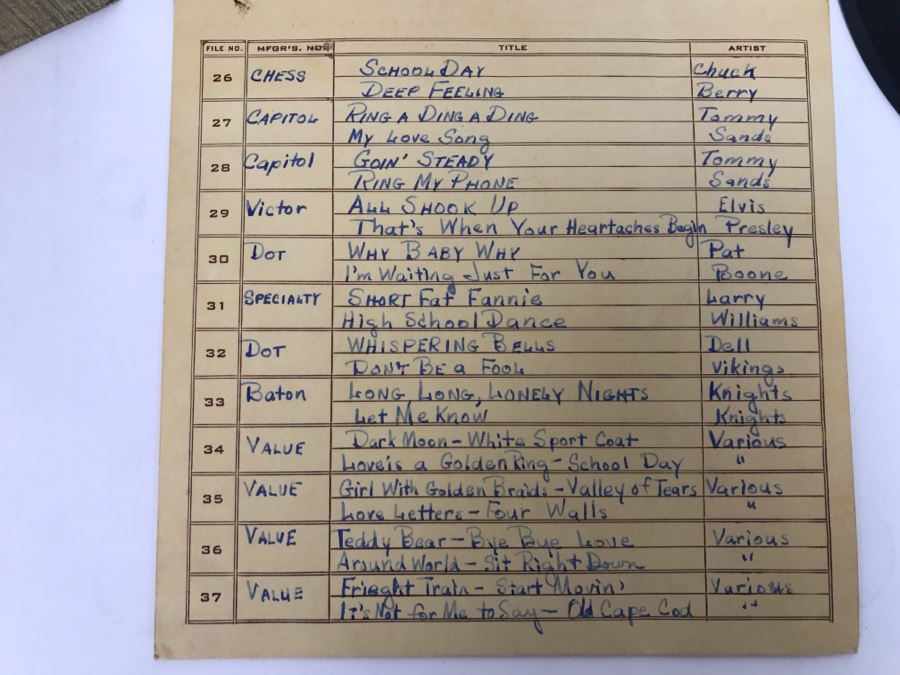 FILE NO. MFGR'S. NO. TITLE ARTIST
26 CHESS SCHOOL DAY Chuck
DEEP FEELING Berry
27 CAPITOL RING A DING A DING Tommy
My Love Song Sands
28 Capitol GOIN' STEADY Tommy
RING MY PHONE Sands
29 Victor ALL SHOOK UP Elvis
That's When Your Heartaches Begin Presley
30 DOT WHY BABY WHY Pat
I'm Waiting Just For You Boone
31 SPECIALTY SHORT Fat Fannie Larry
High School Dance Williams
32 DOT WHISPERING BELLS Dell
DON'T BE a FOOL Vikings
33 Baton LONG, LONG, LONELY NIGHTS Knights
Let Me Know Knights
34 VALUE Dark Moon - White Sport Coat Various
Love is a Golden Ring - School Day "
35 VALUE Girl With Golden Braids - Valley of Tears Various
Love Letters - Four Walls "
36 VALUE Teddy Bear - Bye Bye Love Various
Around World - Sit Right Down "
37 VALUE Frieght Train - Start Movin' Various
It's Not for Me to Say - Old Cape Cod "